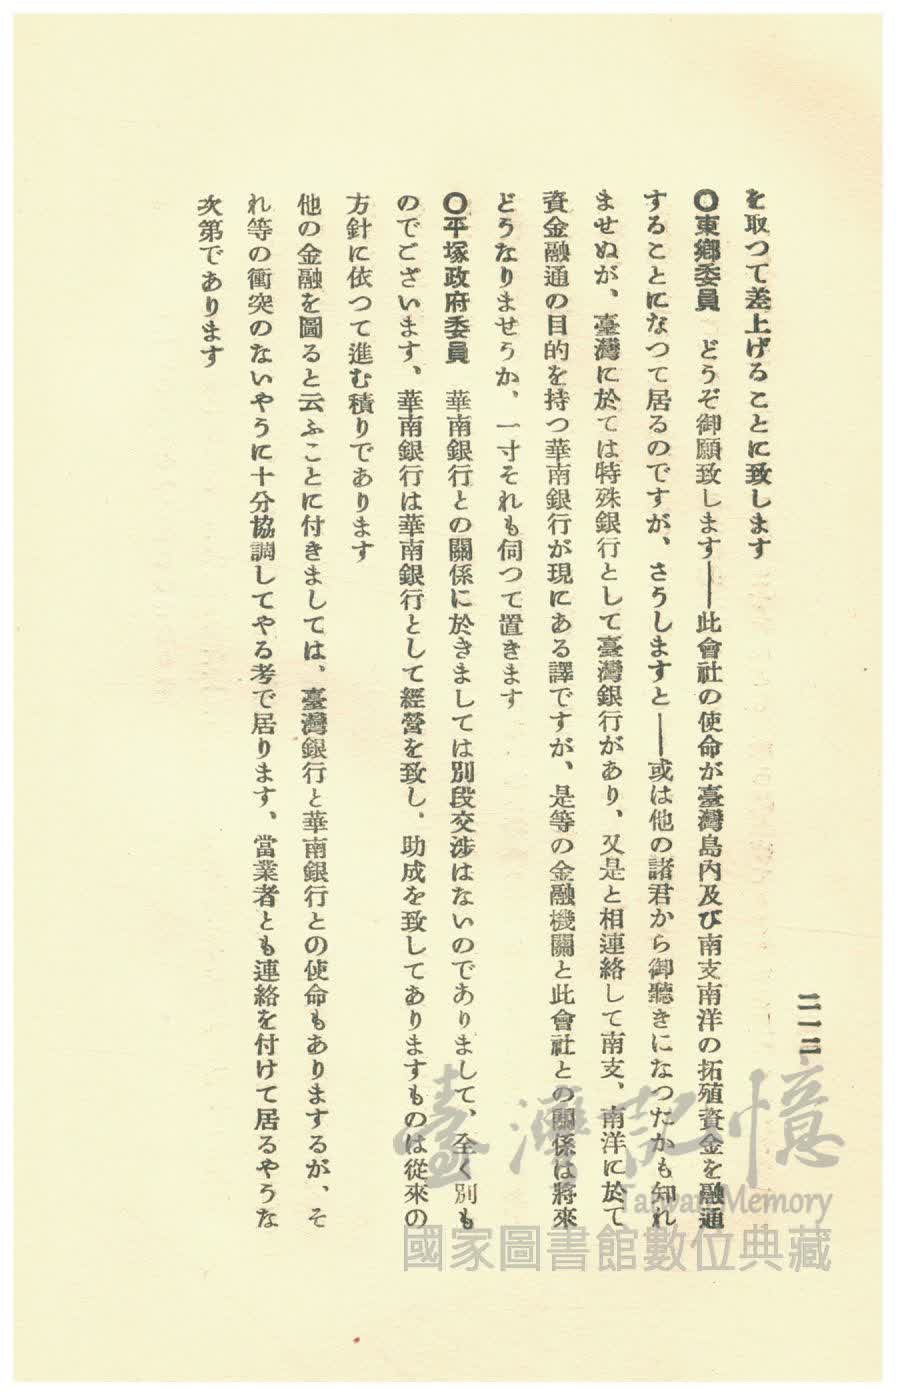 二一二
を取つて差上げることに致します
〇東鄕委員　どうぞ御願致します――此會社の使命が臺灣島內及び南支南洋の拓殖資金を融通
することになつて居るのですが、さうしますと――或は他の諸君から御聽きになつたかも知れ
ませぬが、臺灣に於ては特殊銀行として臺灣銀行があり、又是と相連絡して南支、南洋に於て
資金融通の目的を持つ華南銀行が現にある譯ですが、是等の金融機關と此會社との關係は將來
どうなりませうか、一寸それも伺つて置きます
〇平塚政府委員　華南銀行との關係に於きましては別段交涉はないのでありまして、全く別も
のでございます、華南銀行は華南銀行として經營を致し、助成を致してありますものは從來の
方針に依つて進む積りであります
他の金融を圖ると云ふことに付きましては、臺灣銀行と華南銀行との使命もありまするが、そ
れ等の衝突のないやうに十分協調してやる考で居ります、當業者とも連絡を付けて居るやうな
次第であります
臺灣記憶
Taiwan Memory
國家圖書館數位典藏